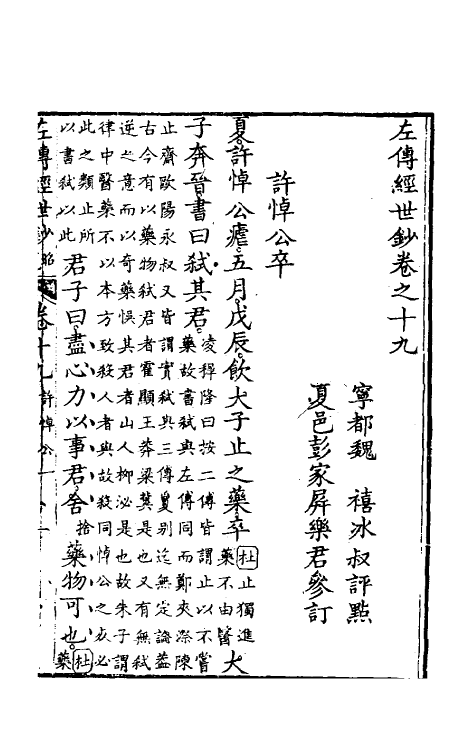 左傳經世鈔卷之十九
寧都魏　禧冰叔評點
夏邑彭家屏樂君參訂
許悼公卒
夏許悼公瘧五月戊辰飲大子止之藥卒杜止獨進藥不由醫大
子奔晉書曰弒其君凌稺隆曰按二傳皆謂止以不嘗藥故書弒與左傳同而鄭夾漈陳
止齋歐陽永叔又皆謂實弒與三傳敻別迄無定論葢
古今有以藥物弒君者霍顯王莽梁冀是也又有無弒
逆之意而以奇藥悞其君者山人柳泌是也故朱子謂
律中醫藥不以本方致殺人者與故殺同悼公之必
此之類止所以書弒以此君子曰盡心力以事君舍捨藥物可也杜藥
左傳經世鈔 昭 卷十九 許悼公